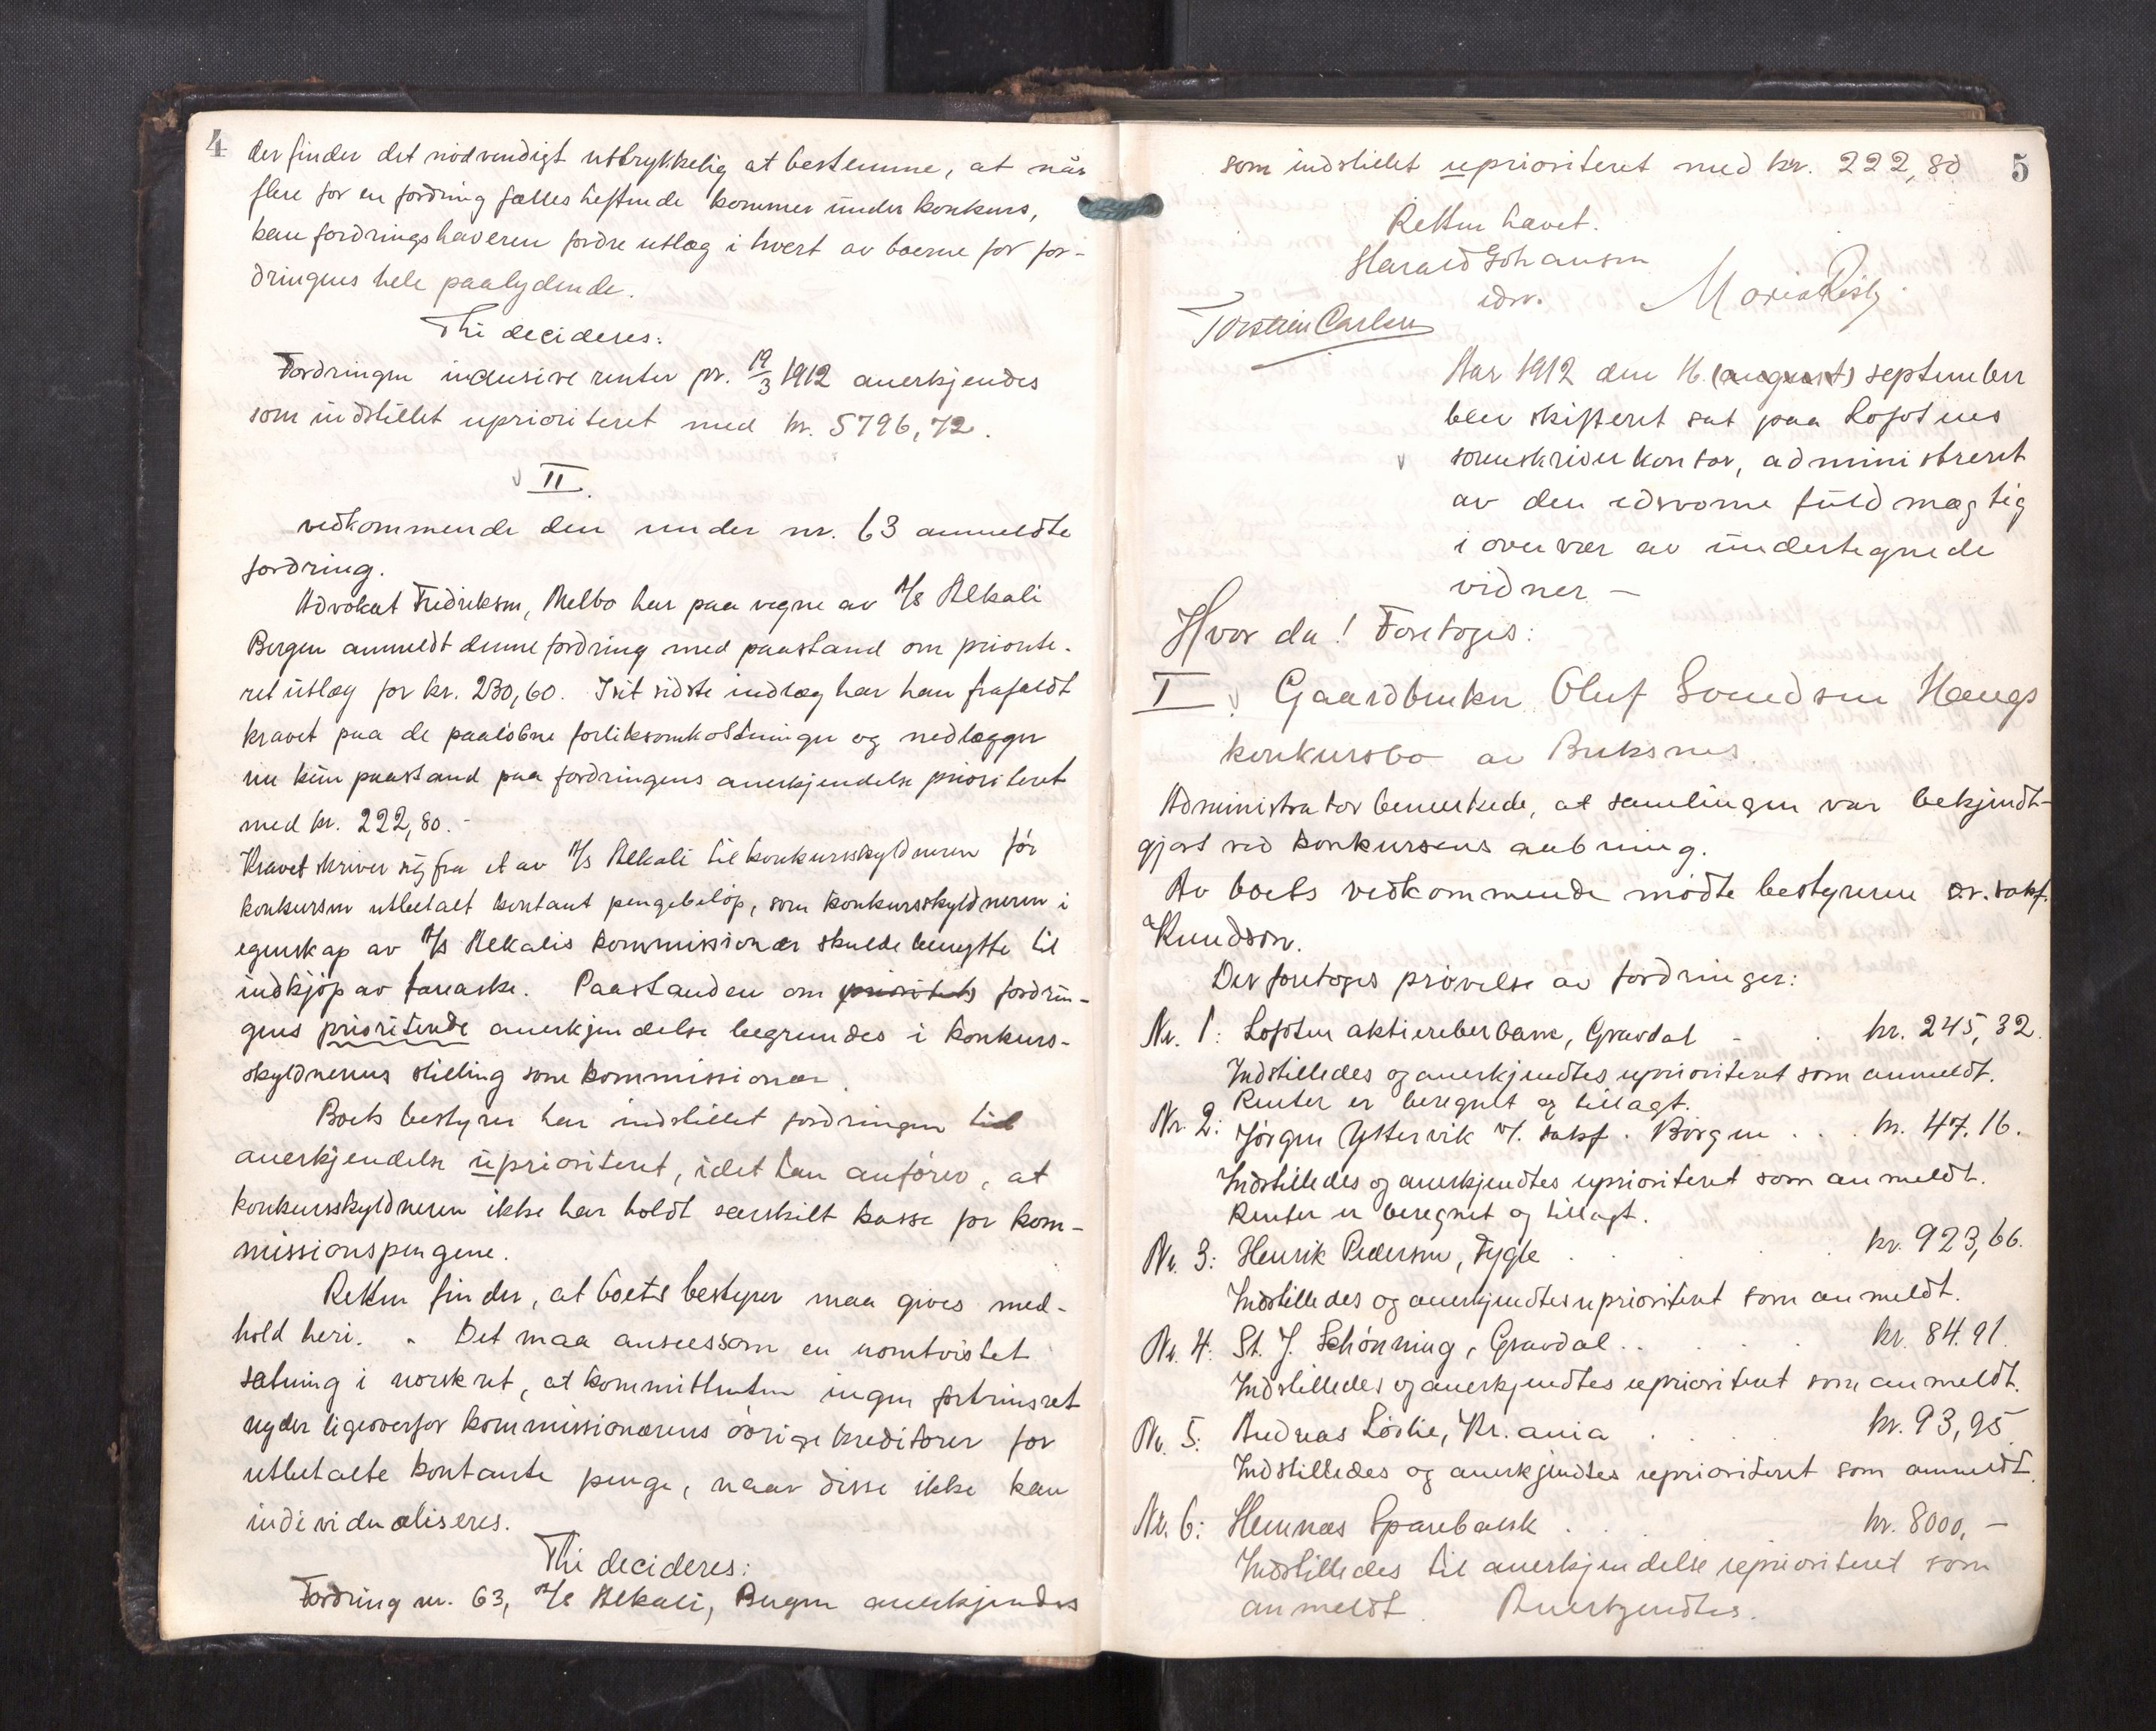 4
der finder det nødvendigt uttrykkelig at bestemme, at når
flere for en fordring fælles heftende kommer under konkurs,
kan fordringshaveren fordre utlæg i hvert av boerne for for-
dringens hele paalydende.
Thi decideres:
Fordringen inclusive renter pr. 19/3 1912 anerkjendes
som indstillet uprioriteret med kr. 5796,72.
II.
vedkommende den under nr. 63 anmeldte
fordring.
Advokat Fredriksen, Melbo har paa vegne av A/S Alkali
Bergen anmeldt denne fordring med paastand om priorite-
ret utlæg for kr. 230,60. I sit sidste indlæg har han frafaldt
kravet paa de paaløbne forliksomkostninger og nedlægger
nu kun paastand paa fordringens anerkjendelse prioriteret
med kr. 222,80.-
Kravet skriver sig fra et av A/S Alkali til konkursskyldneren før
konkursen utbetalt kontant pengebeløp, som konkursskyldneren i
egenskap av A/S Alkalis kommissionær skulde benytte til
indkjøp av tareaske. Paastanden om prioritets fordrin-
gens prioriterede anerkjendelse begrundes i konkurs-
skyldnerens stilling som kommissionær.
Boets bestyrer har indstillet fordringen til
anerkjendelse uprioriteret, idet han anfører, at
konkursskyldneren ikke har holdt særskilt kasse for kom-
missionspengene.
Retten finder, at boets bestyrer maa gives med-
hold heri. - Det maa ansees som en uomtvistet
sætning i norsk ret, at kommittenten ingen fortrinsret
nyder ligeoverfor kommissionærens øvrige kreditorer for
utbetalte kontante penge, naar disse ikke kan
individualiseres.
Thi decideres:
Fordring nr. 63, A/S Alkali, Bergen anerkjendes
5
som indstillet uprioriteret med kr. 222,80
Retten hævet.
Harald Johansen
edsv.
Torstein Carlsen
Aar 1912 den 16. (august) september
blev skifteret sat paa Lofotens
sorenskriverkontor, administreret
av den edsvorne fuldmægtig
i overvær av undertegnede
vidner -
Hvor da! Foretoges:
I. Gaardbruker Oluf Svendsen Haugs
konkursbo av Buksnes.
Administrator bemerkede, at samlingen var bekjendt-
gjort ved konkursens aabning.
Av boets vedkommende mødte bestyreren o.r.sakf.
Knudson.
Der foretoges prøvelse av fordringer:
Nr. 1: Lofoten aktiereberbane, Gravdal - . kr. 245,32.
Indstilledes og anerkjendtes uprioriteret som anmeldt.
Renter er beregnet og tillagt.
Nr. 2: Jørgen Yttervik v/. sakf. Borgen . . . kr. 47.16.
Indstilledes og anerkjendtes uprioriteret som anmeldt.
Renter er beregnet og tillagt.
Nr. 3: Henrik Pedersen, Fygle . . . . kr. 923,66.
Indstilledes og anerkjendtes uprioriteret som anmeldt.
Nr. 4: St. J. Schønning, Gravdal . . . . . kr. 84.91.
Indstilledes og anerkjendtes uprioriteret som anmeldt.
Nr. 5: Andreas Løslie, Kr.ania . . . . kr. 93,95
Indstilledes og anerkjendtes uprioriteret som anmeldt.
Nr. 6: Hemnæs Sparebank . . . kr. 8000,-
Indstilledes til anerkjendelse uprioriteret som
anmeldt. Anerkjendtes.